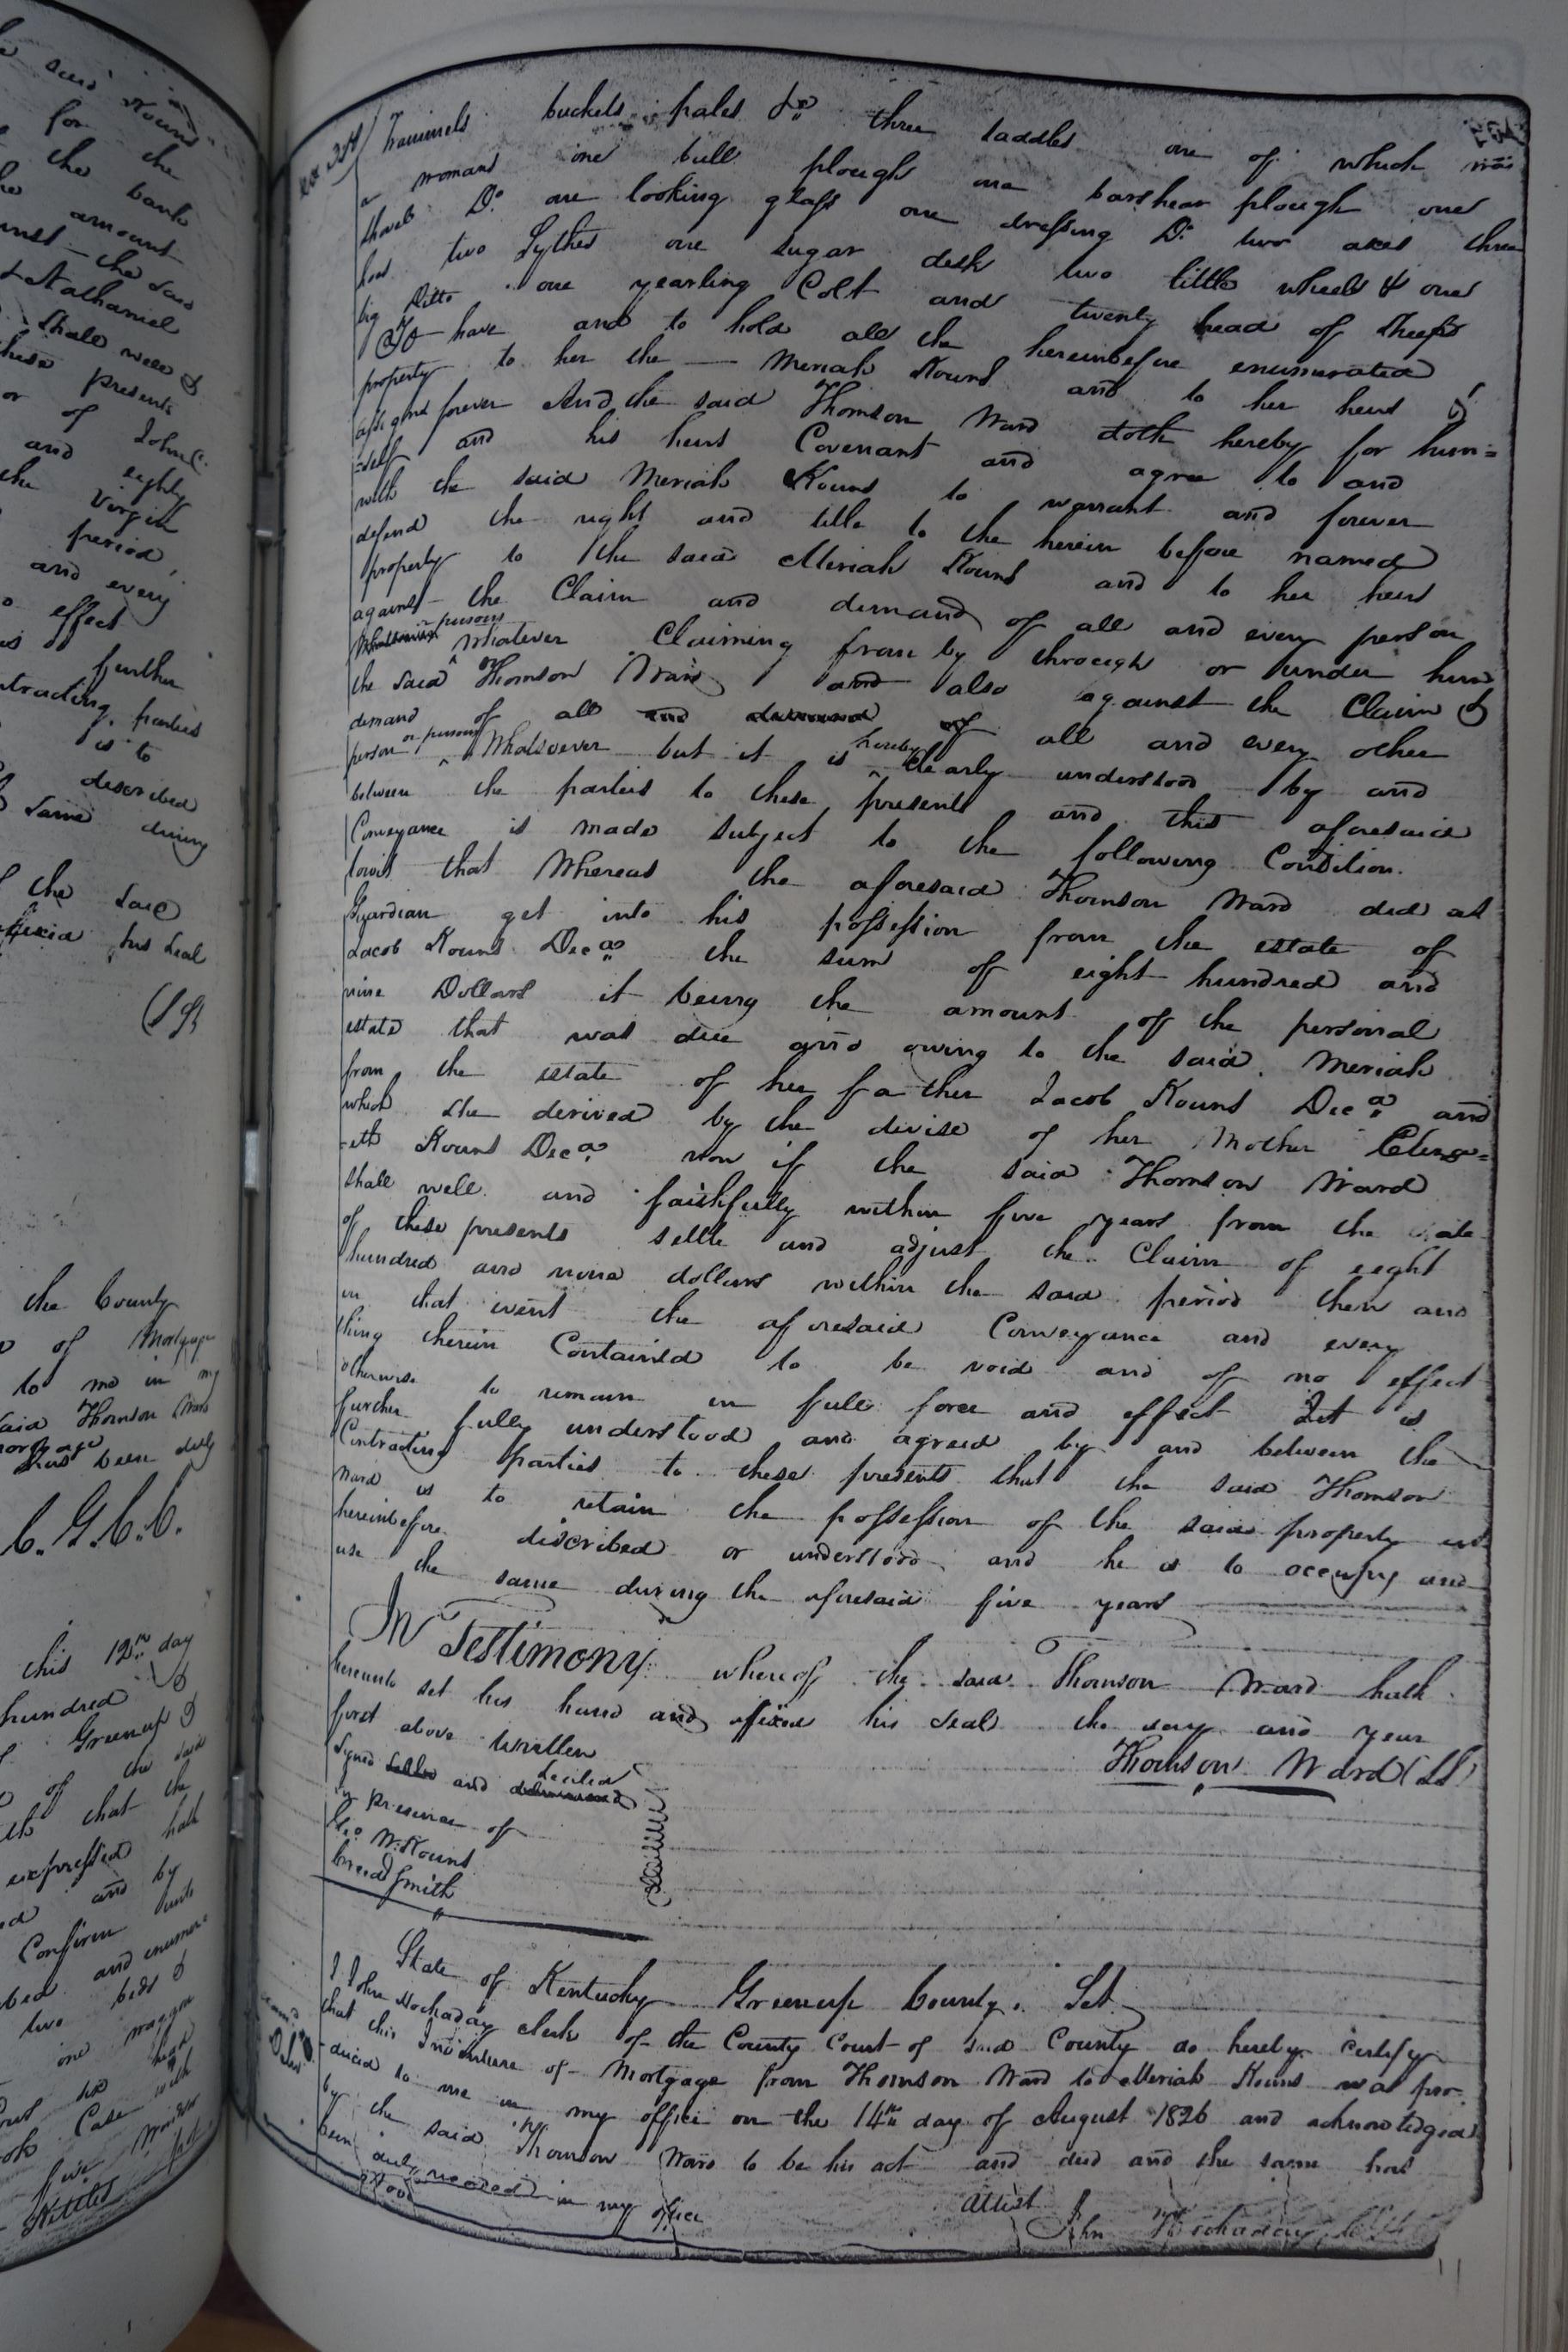 he said Kouns
for the
the bank
he amount
unst the said
& Nathaniel
shall well &
these presents
or of John C.
and eighty
the Virgin
period
and every
effect
further
ntracting parties
is to
described
same during
the said
affixed his seal
(LS)
the County
of Mortgage
to me in my
said Thomson Ward
been duly
C. G. C. C.
this 12th day
hundred &
Greenup &
of the said
that the
expressed hath
and by
Confirm unto
and enumer=
two beds &
one waggon
Case with
five
Kettles
Trammels buckets pales &c three saddles one of which was
a womans one bull plough one barshear plough one
shovel Do. one looking glass one dressing Do. two axes three
hoes two Sythes one sugar desk two little wheels & one
big Ditto one yearling Colt and twenty head of sheep
To have and to hold all the hereinbefore enumurated
property to her the — Meriah Kouns and to her heirs &
assigns forever And the said Thomson Ward doth hereby for him=
=self and his heirs Covenant and agree to and
with the said Meriah Kouns to warrant and forever
defend the right and title to the herein before named
property to the said Meriah Kouns and to her heirs
against the Claim and demand of all and every person
or persons whatever Claiming from by through or under him
the said Thomson Ward and also against the Claim &
demand of all and demand of all and every other
person or persons Whatsoever but it is hereby Clearly understood by and
between the parties to these presents and this aforesaid
Conveyance is made subject to the following Condition.
towit that Whereas the aforesaid Thomson Ward did as
Guardian get into his possession from the estate of
Jacob Kouns Decd. the sum of eight hundred and
nine Dollars it being the amount of the personal
estate that was due and owing to the said Meriah
from the estate of her father Jacob Kouns Decd. and
which she derived by the devise of her Mother
-eth Kouns Decd. now if the said Thomson Ward
shall well and faithfully within five years from the date
of these presents settle and adjust the Claim of eight
hundred and nine dollars within the said period then and
in that event the aforesaid Conveyance and every
thing therein Contained to be void and of no effect
otherwise to remain in full force and effect It is
further fully understood and agreed by and between the
Contracting parties to these presents that the said Thomson
Ward is to retain the possession of the said property as
hereinbefore discribed or understood and he is to occupy and
use the same during the aforesaid five years
In Testimony whereof the said Thomson Ward hath
hereunto set his hand and affixed his seal the day and year
first above written
Thomson Ward (LS)
Signed and sealed
in presence of
Geo. W. Kouns
Smith
State of Kentucky Greenup County. Sct
I John Hockaday clerk of the County Court of said County do hereby certify
that this Indenture of Mortgage from Thomson Ward to Meriah Kouns was pro-
-duced to me in my office on the 14th day of August 1826 and acknowledged
by the said Thomson Ward to be his act and deed and the same has
been duly recorded in my office
Attest John Hockaday